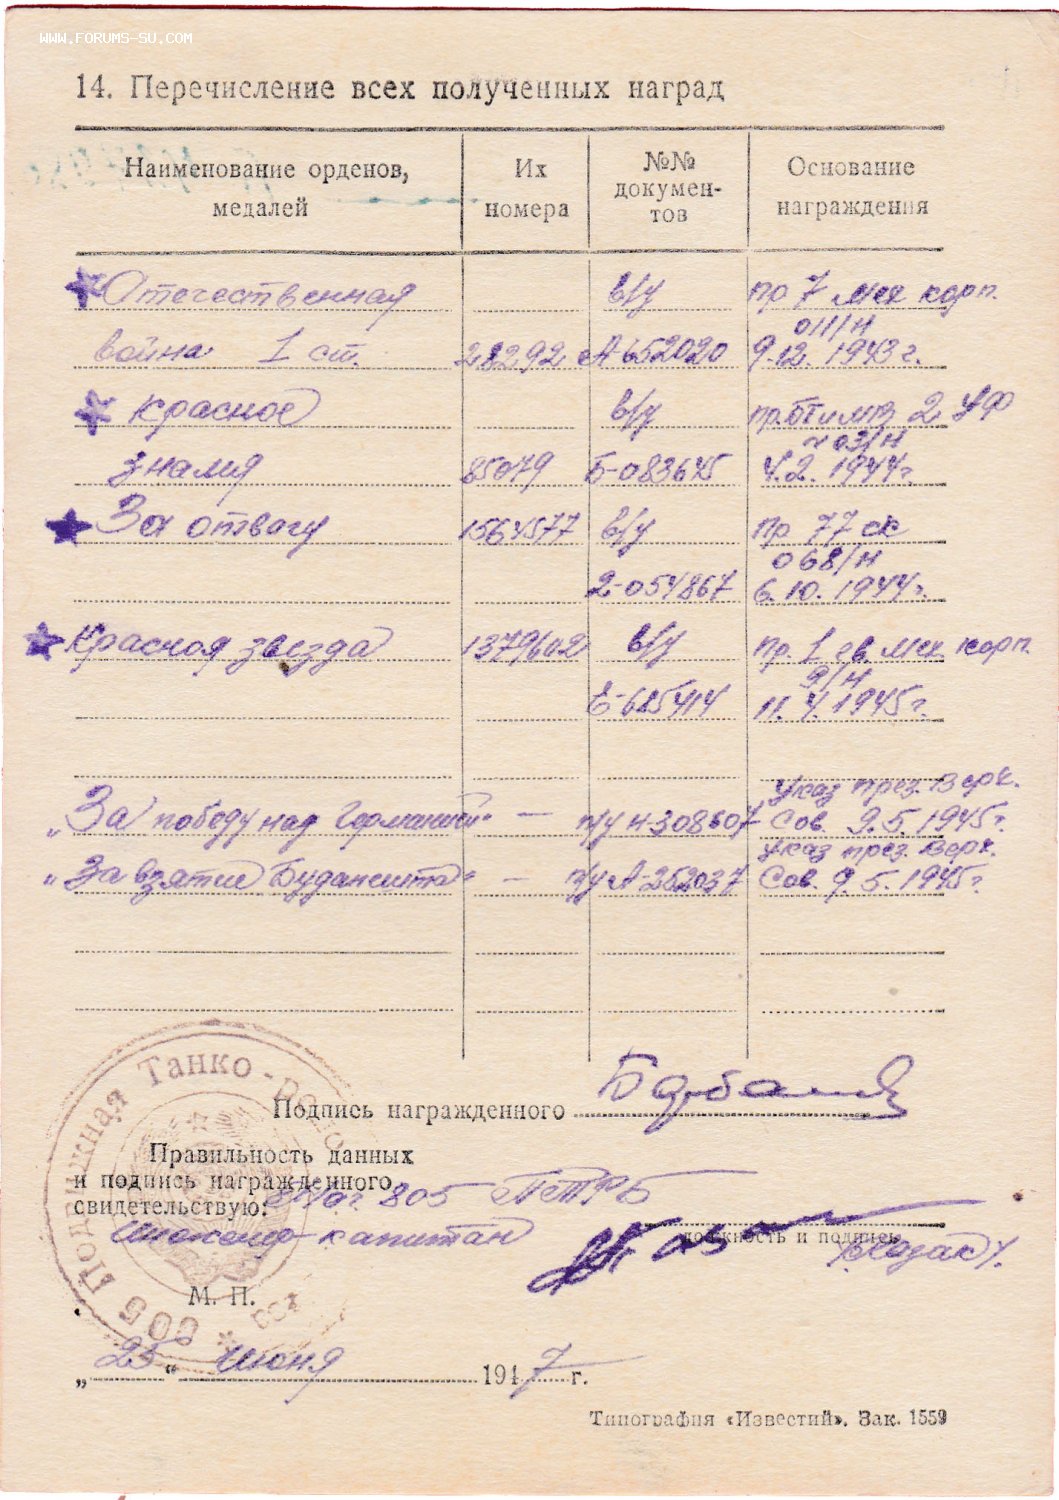 WWW.FORUMS-SU.COM
14. Перечисление всех полученных наград
Наименование орденов, медалей
Их номера
№№ докумен-тов
Основание награждения
Отечественная в/у пр 7 мех корп.
011/н
война 1 ст. 28292 А 652020 9.12.1943 г.
Красное в/у 2 УФ
03/н
знамя 85079 Б-083645 4.2.1944 г
За отвагу 1564577 в/у пр 77 ск
068/н
2-054867 6.10.1944 г.
Красная звезда 1379602 в/у пр. 1 гв. мех корп.
9/н
Е-685414 11.4.1945 г.
Указ през. Верх.
„За победу над Германией“ — п/у Н-308607 Сов. 9.5.1945 г.
Указ през. Верх.
„За взятие Будапешта“ — п/у А-252037 Сов. 9.5.1945 г.
Подвижная Танко-
Подпись награжденного
Правильность данных
и подпись награжденного
свидетельствую: 805 ПТРБ
инженер-капитан
должность и подпись
/Казак/.
М. П.
„25“ июня 1947 г.
Типография «Известий». Зак. 1559